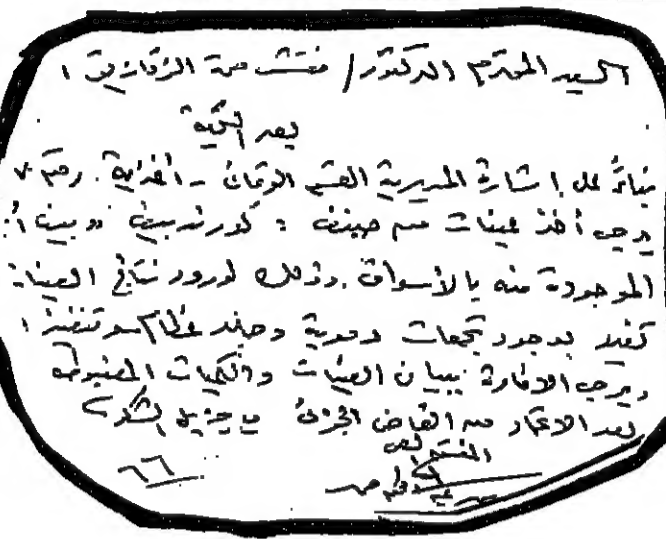 السيد المحترم الدكتور / مفتش صحة الزقازيق ١
بعد التحية
بناءً على إشارة المديرية القسم الوقائى - أغذية . رقم ٧
يرجى أخذ عينات من صنف : كورندبيف " بيف
الموجودة منه بالأسواق . وذلك لورود نتائج العينات
تفيد بوجود تجمعات دموية وجلد عظام
ويرجى الافادة ببيان العينات والكميات المضبوطة
بعد الاعتماد من القاضى الجزئى مع جزيل الشكر
٦٦